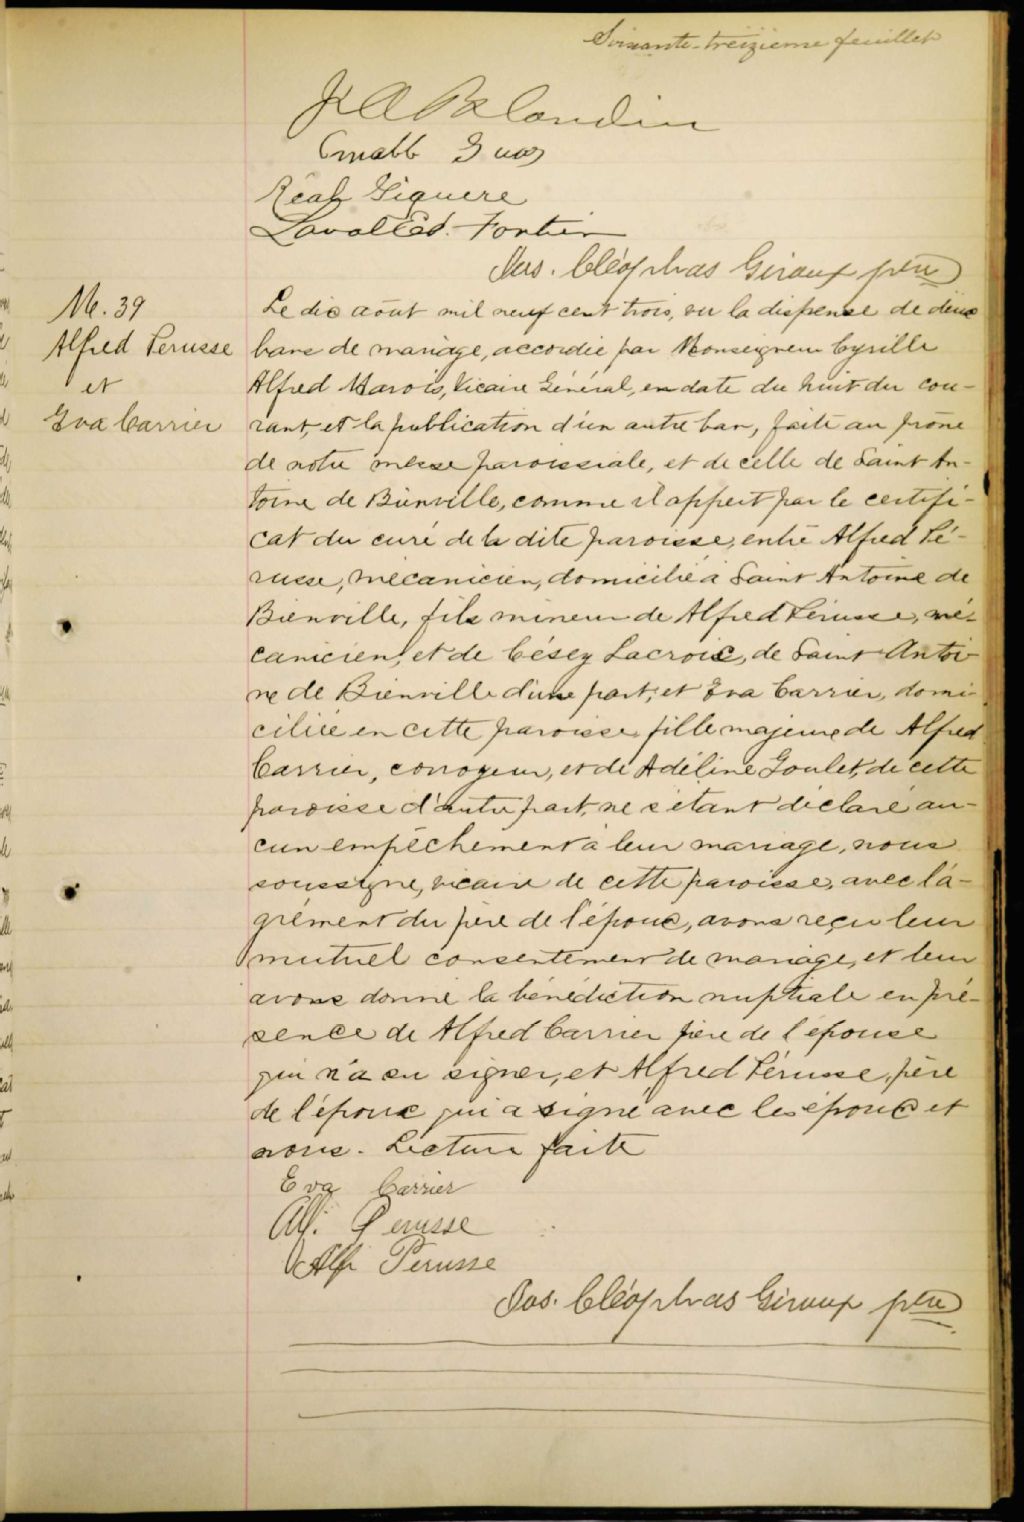 Soixante-treizième feuillet
J A Blondin
Réal Giguere
Laval Ed. Fortier
Jos. Cléophas Giroux ptre
M. 39
Alfred Perusse
et
Eva Carrier
Le dix août mil neuf cent trois, vu la dispense de deux
bans de mariage, accordée par Monseigneur Cyrille
Alfred Marois, Vicaire Général, en date du huit du cou-
rant, et la publication d'un autre ban, faite au prône
de notre messe paroissiale, et de celle de Saint An-
toine de Bienville, comme il appert par le certifi-
cat du curé de la dite paroisse, entre Alfred Pé-
russe, mécanicien, domicilié à Saint Antoine de
Bienville, fils mineur de Alfred Pérusse, mé-
canicien, et de Césey Lacroix, de Saint Antoi-
ne de Bienville d'une part; et Eva Carrier, domi-
ciliée en cette paroisse, fille majeure de Alfred
Carrier, corroyeur, et de Adéline Goulet, de cette
paroisse d'autre part, ne s'étant déclaré au-
cun empêchement à leur mariage, nous
soussigné, vicaire de cette paroisse, avec l'a-
grément du père de l'époux, avons reçu leur
mutuel consentement de mariage, et leur
avons donné la bénédiction nuptiale en pré-
sence de Alfred Carrier père de l'épouse
qui n'a su signer, et Alfred Pérusse, père
de l'époux qui a signé avec les époux et
nous. Lecture faite
Eva Carrier
Alf. Perusse
Alf Perusse
Jos. Cléophas Giroux ptre